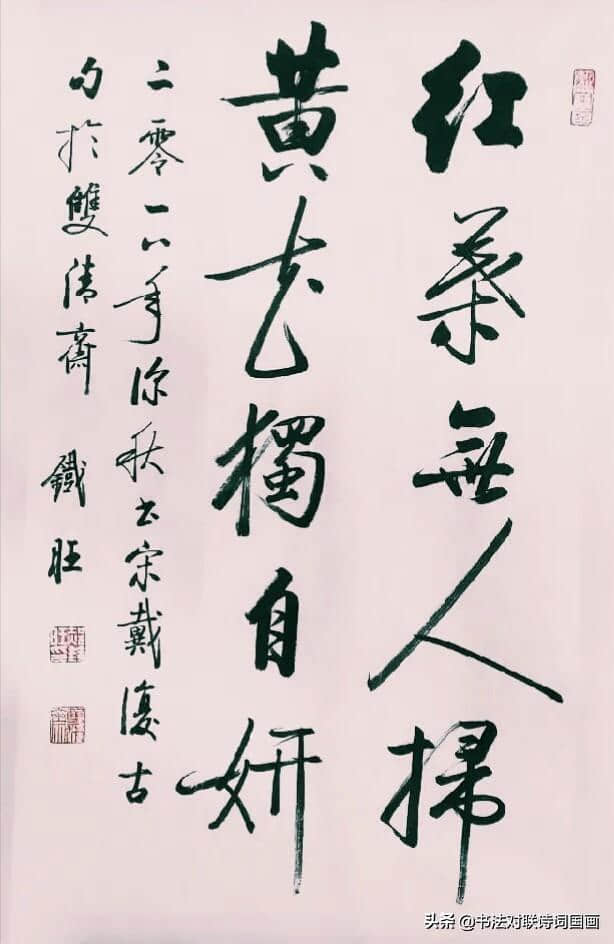 红葉無人掃
黄花獨自妍
二零一八年深秋书宋戴復古
句於雙清齋 鐵旺
头条 @书法对联诗词国画